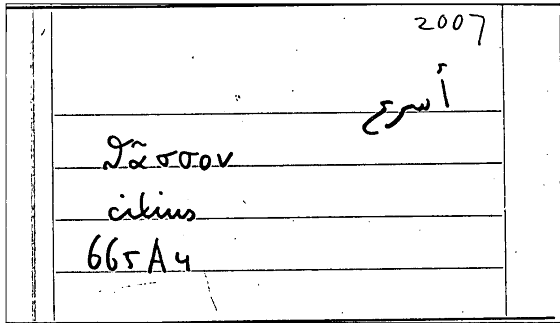 2007
أسرع
θᾶσσον
citius
665A4